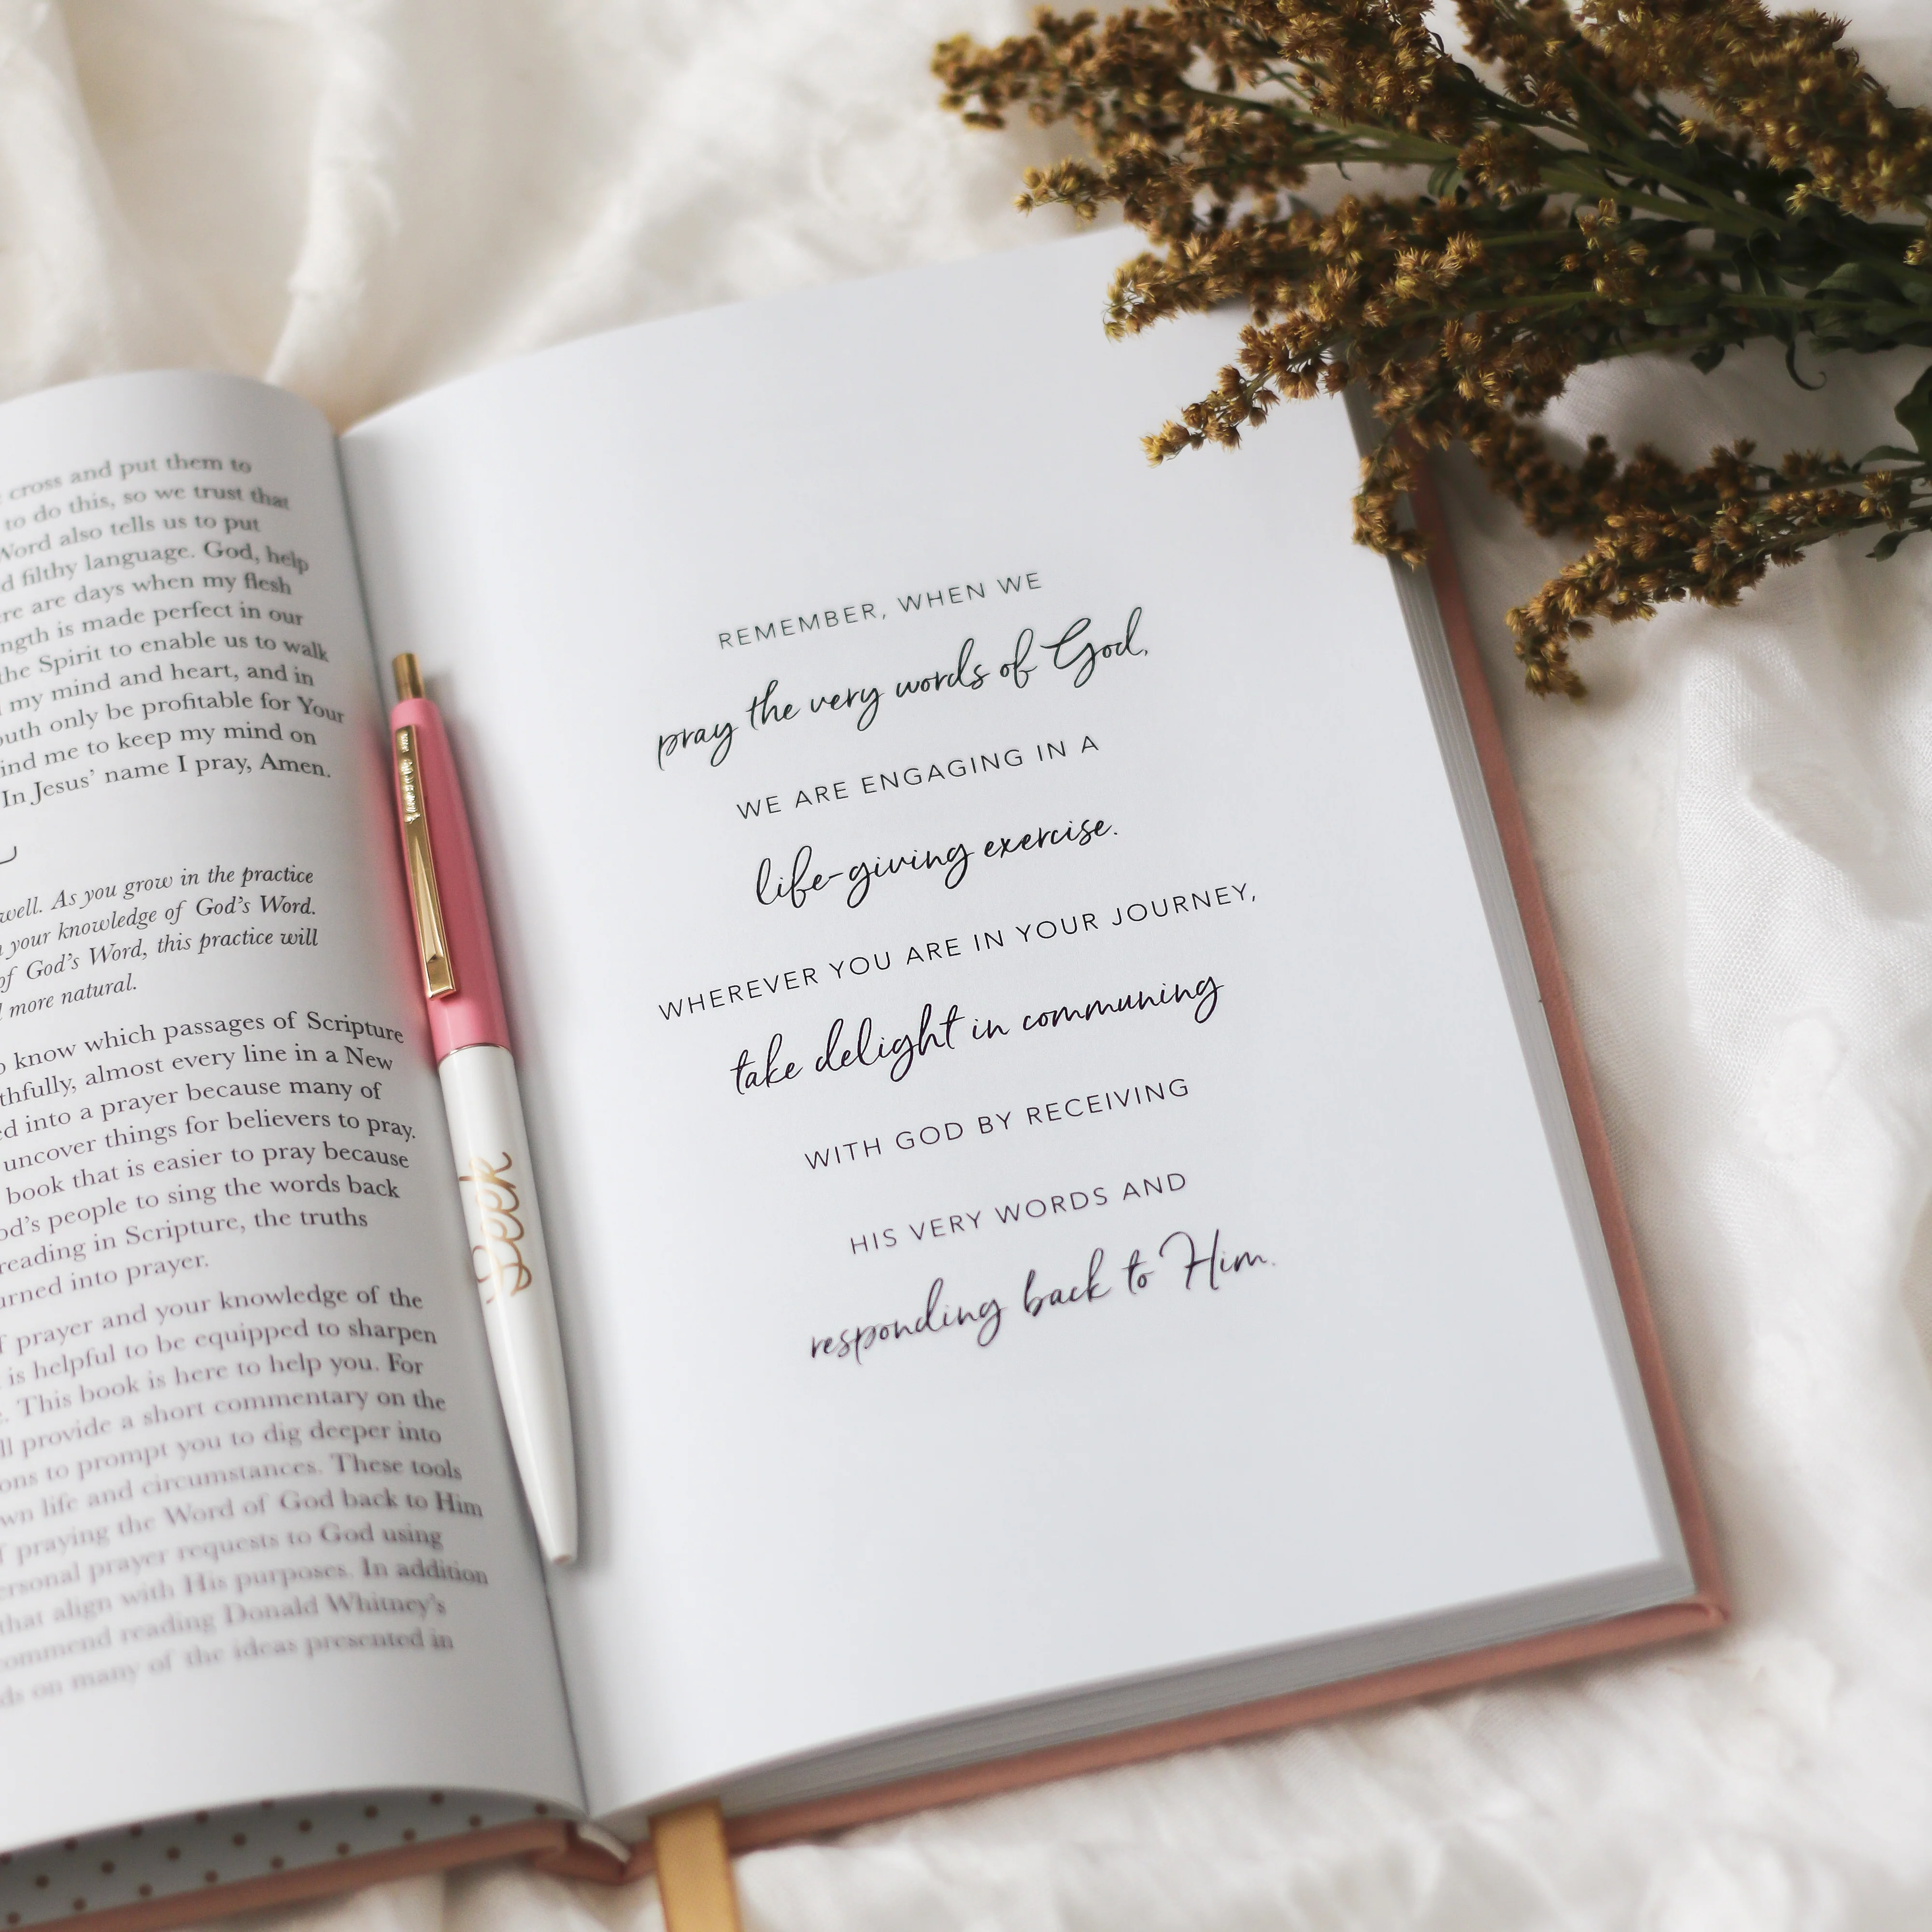 cross and put them to
to do this, so we trust that
Word also tells us to put
d filthy language. God, help
re are days when my flesh
ngth is made perfect in our
the Spirit to enable us to walk
my mind and heart, and in
outh only be profitable for Your
ind me to keep my mind on
In Jesus' name I pray, Amen.
well. As you grow in the practice
your knowledge of God's Word.
of God's Word, this practice will
more natural.
know which passages of Scripture
thfully, almost every line in a New
ed into a prayer because many of
uncover things for believers to pray.
book that is easier to pray because
od's people to sing the words back
reading in Scripture, the truths
urned into prayer.
prayer and your knowledge of the
is helpful to be equipped to sharpen
. This book is here to help you. For
ll provide a short commentary on the
ons to prompt you to dig deeper into
wn life and circumstances. These tools
praying the Word of God back to Him
ersonal prayer requests to God using
that align with His purposes. In addition
ommend reading Donald Whitney's
ds on many of the ideas presented in
Seek
REMEMBER, WHEN WE
pray the very words of God,
WE ARE ENGAGING IN A
life-giving exercise.
WHEREVER YOU ARE IN YOUR JOURNEY,
take delight in communing
WITH GOD BY RECEIVING
HIS VERY WORDS AND
responding back to Him.